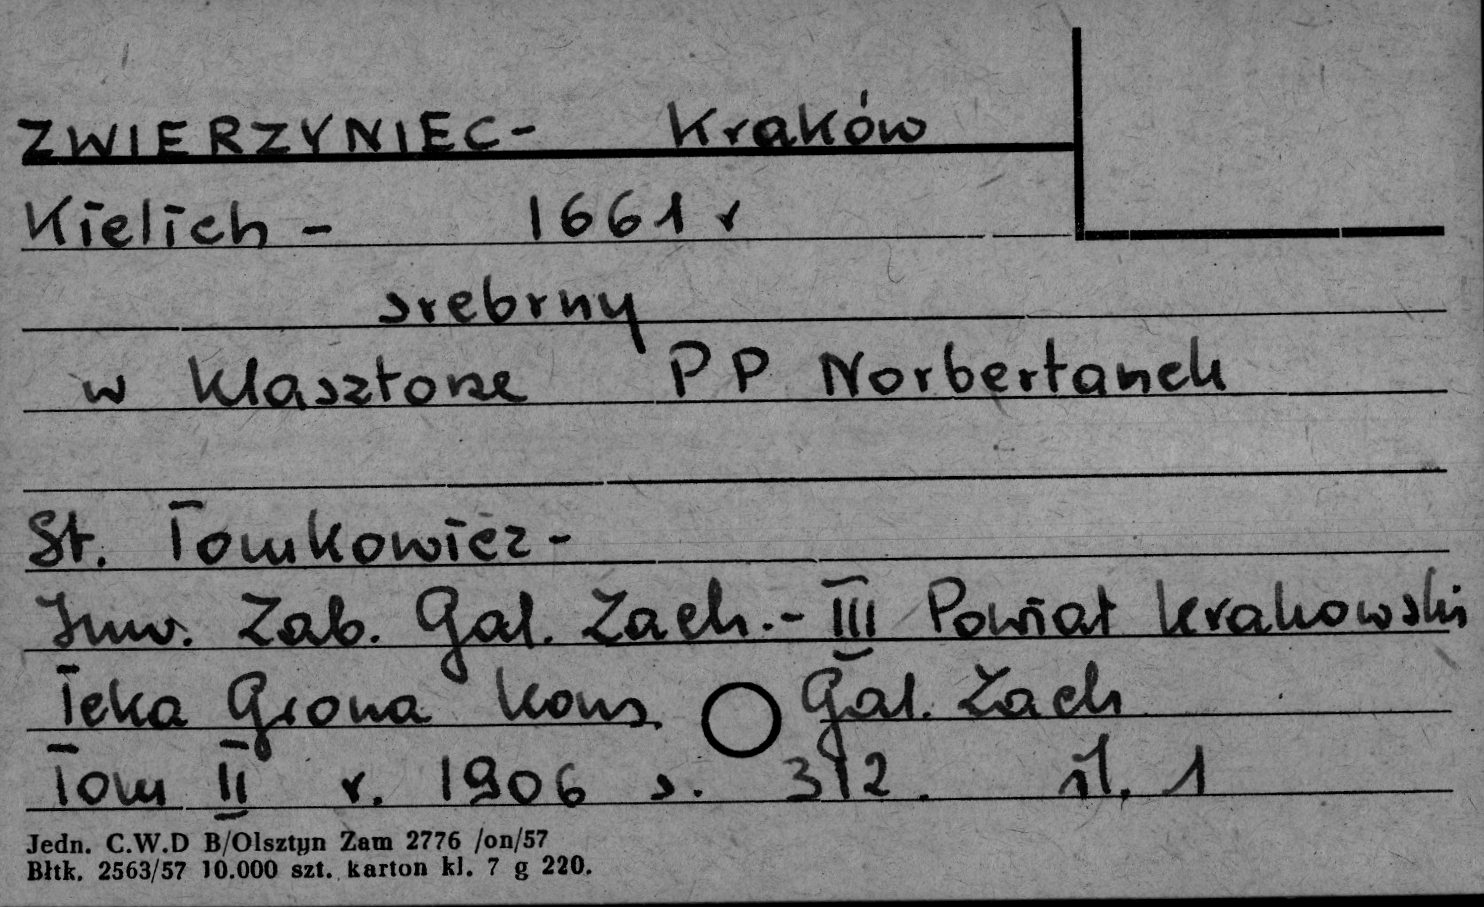 ZWIERZYNIEC- Kraków
Kielich - 1661 r
srebrny
w klasztorze PP Norbertanek
St. Tomkowicz -
Inw. Zab. Gal. Zach. - III Powiat krakowski
Teka Grona kons. Gal. Zach
Tom II r. 1906 s. 312. il. 1
Jedn. C.W.D B/Olsztyn Zam 2776 /on/57
Błtk. 2563/57 10.000 szt. karton kl. 7 g 220.